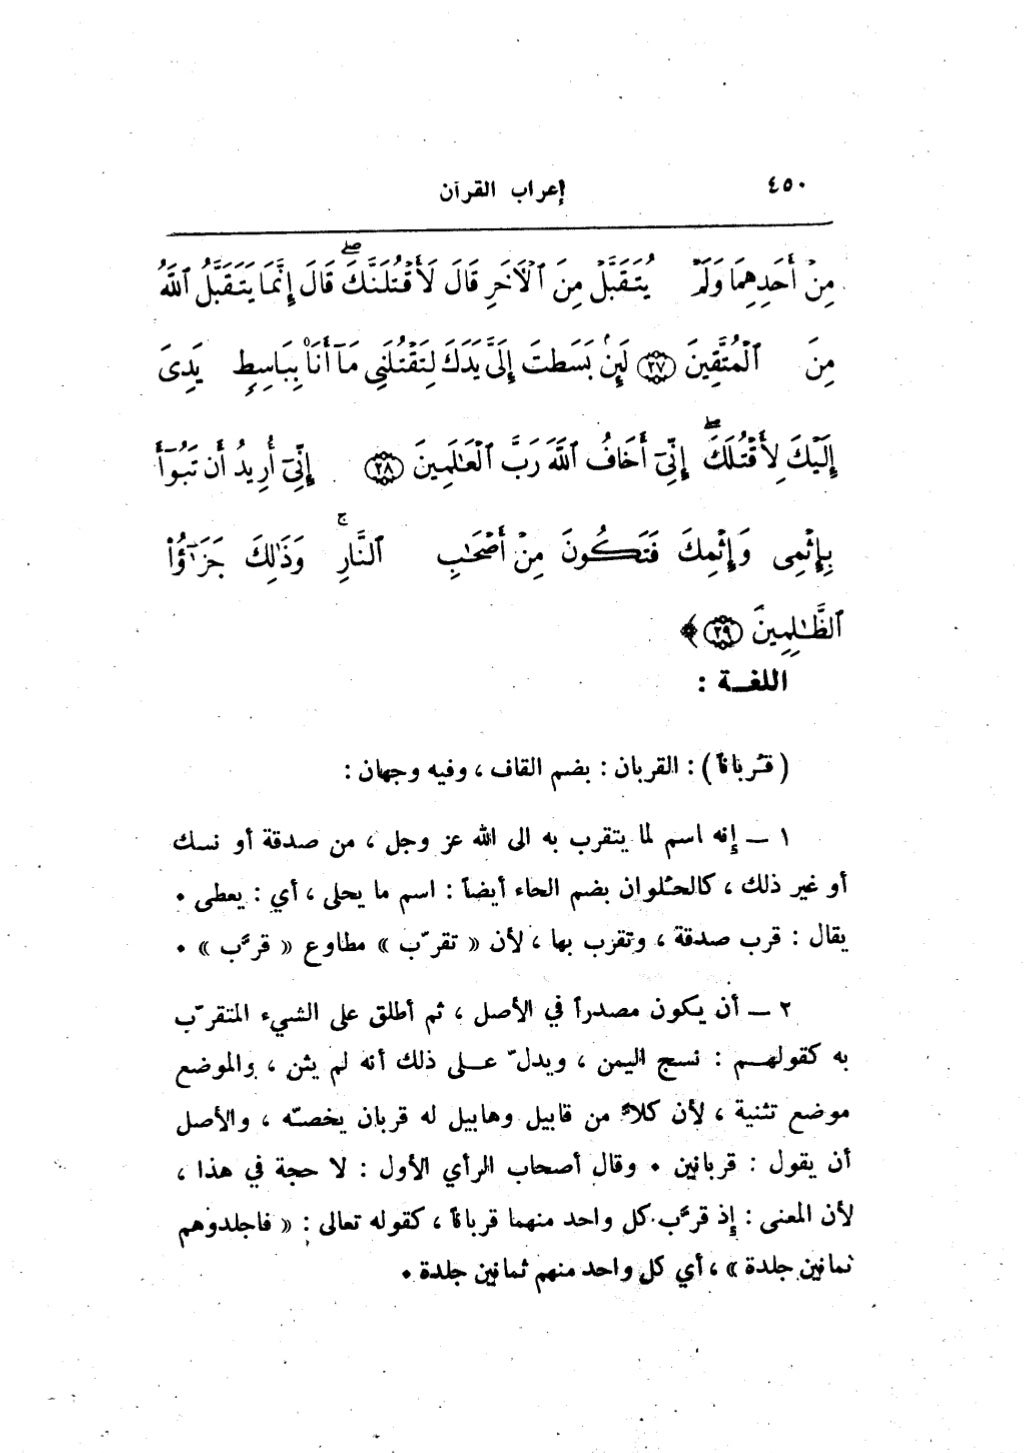 ٤٥٠
إعراب القرآن
مِنْ أَحَدِهِمَا وَلَمْ يُتَقَبَّلْ مِنَ ٱلْآخَرِ قَالَ لَأَقْتُلَنَّكَ ۖ قَالَ إِنَّمَا يَتَقَبَّلُ ٱللَّهُ
مِنَ ٱلْمُتَّقِينَ ﴿٢٧﴾ لَئِنۢ بَسَطتَ إِلَىَّ يَدَكَ لِتَقْتُلَنِى مَآ أَنَا۠ بِبَاسِطٍ يَدِىَ
إِلَيْكَ لِأَقْتُلَكَ ۖ إِنِّىٓ أَخَافُ ٱللَّهَ رَبَّ ٱلْعَـٰلَمِينَ ﴿٢٨﴾ إِنِّىٓ أُرِيدُ أَن تَبُوٓأَ
بِإِثْمِى وَإِثْمِكَ فَتَكُونَ مِنْ أَصْحَـٰبِ ٱلنَّارِ ۚ وَذَٰلِكَ جَزَٰٓؤُا۟
ٱلظَّـٰلِمِينَ ﴿٢٩﴾ ﴾
اللغــة :
( قُرباناً ) : القربان : بضم القاف ، وفيه وجهان :
١ ــ إنه اسم لما يتقرب به الى الله عز وجل ، من صدقة أو نسك
أو غير ذلك ، كالحُلوان بضم الحاء أيضاً : اسم ما يحلى ، أي : يعطى •
يقال : قرب صدقة ، وتقرب بها ، لأن « تقرّب » مطاوع « قرَّب » •
٢ ــ أن يكون مصدراً في الأصل ، ثم أطلق على الشيء المتقرّب
به كقولهــم : نسج اليمن ، ويدلّ علــى ذلك أنه لم يثن ، والموضع
موضع تثنية ، لأن كلاً من قابيل وهابيل له قربان يخصّه ، والأصل
أن يقول : قربانين • وقال أصحاب الرأي الأول : لا حجة في هذا ،
لأن المعنى : إذ قرَّب كل واحد منهما قرباناً ، كقوله تعالى : « فاجلدوهم
ثمانين جلدة » ، أي كل واحد منهم ثمانين جلدة •